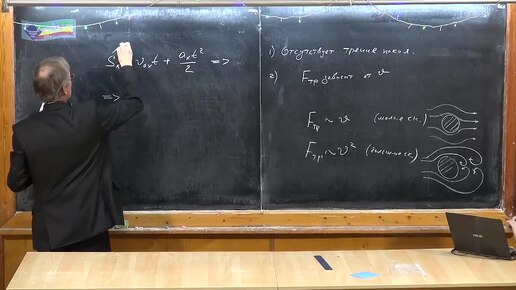 Sₓ = v₀ₓt + aₓt²/2 =>
=>
1) Отсутствует трение покоя.
2) Fтр зависит от v
Fтр ~ v (малые ск.)
Fтр ~ v²